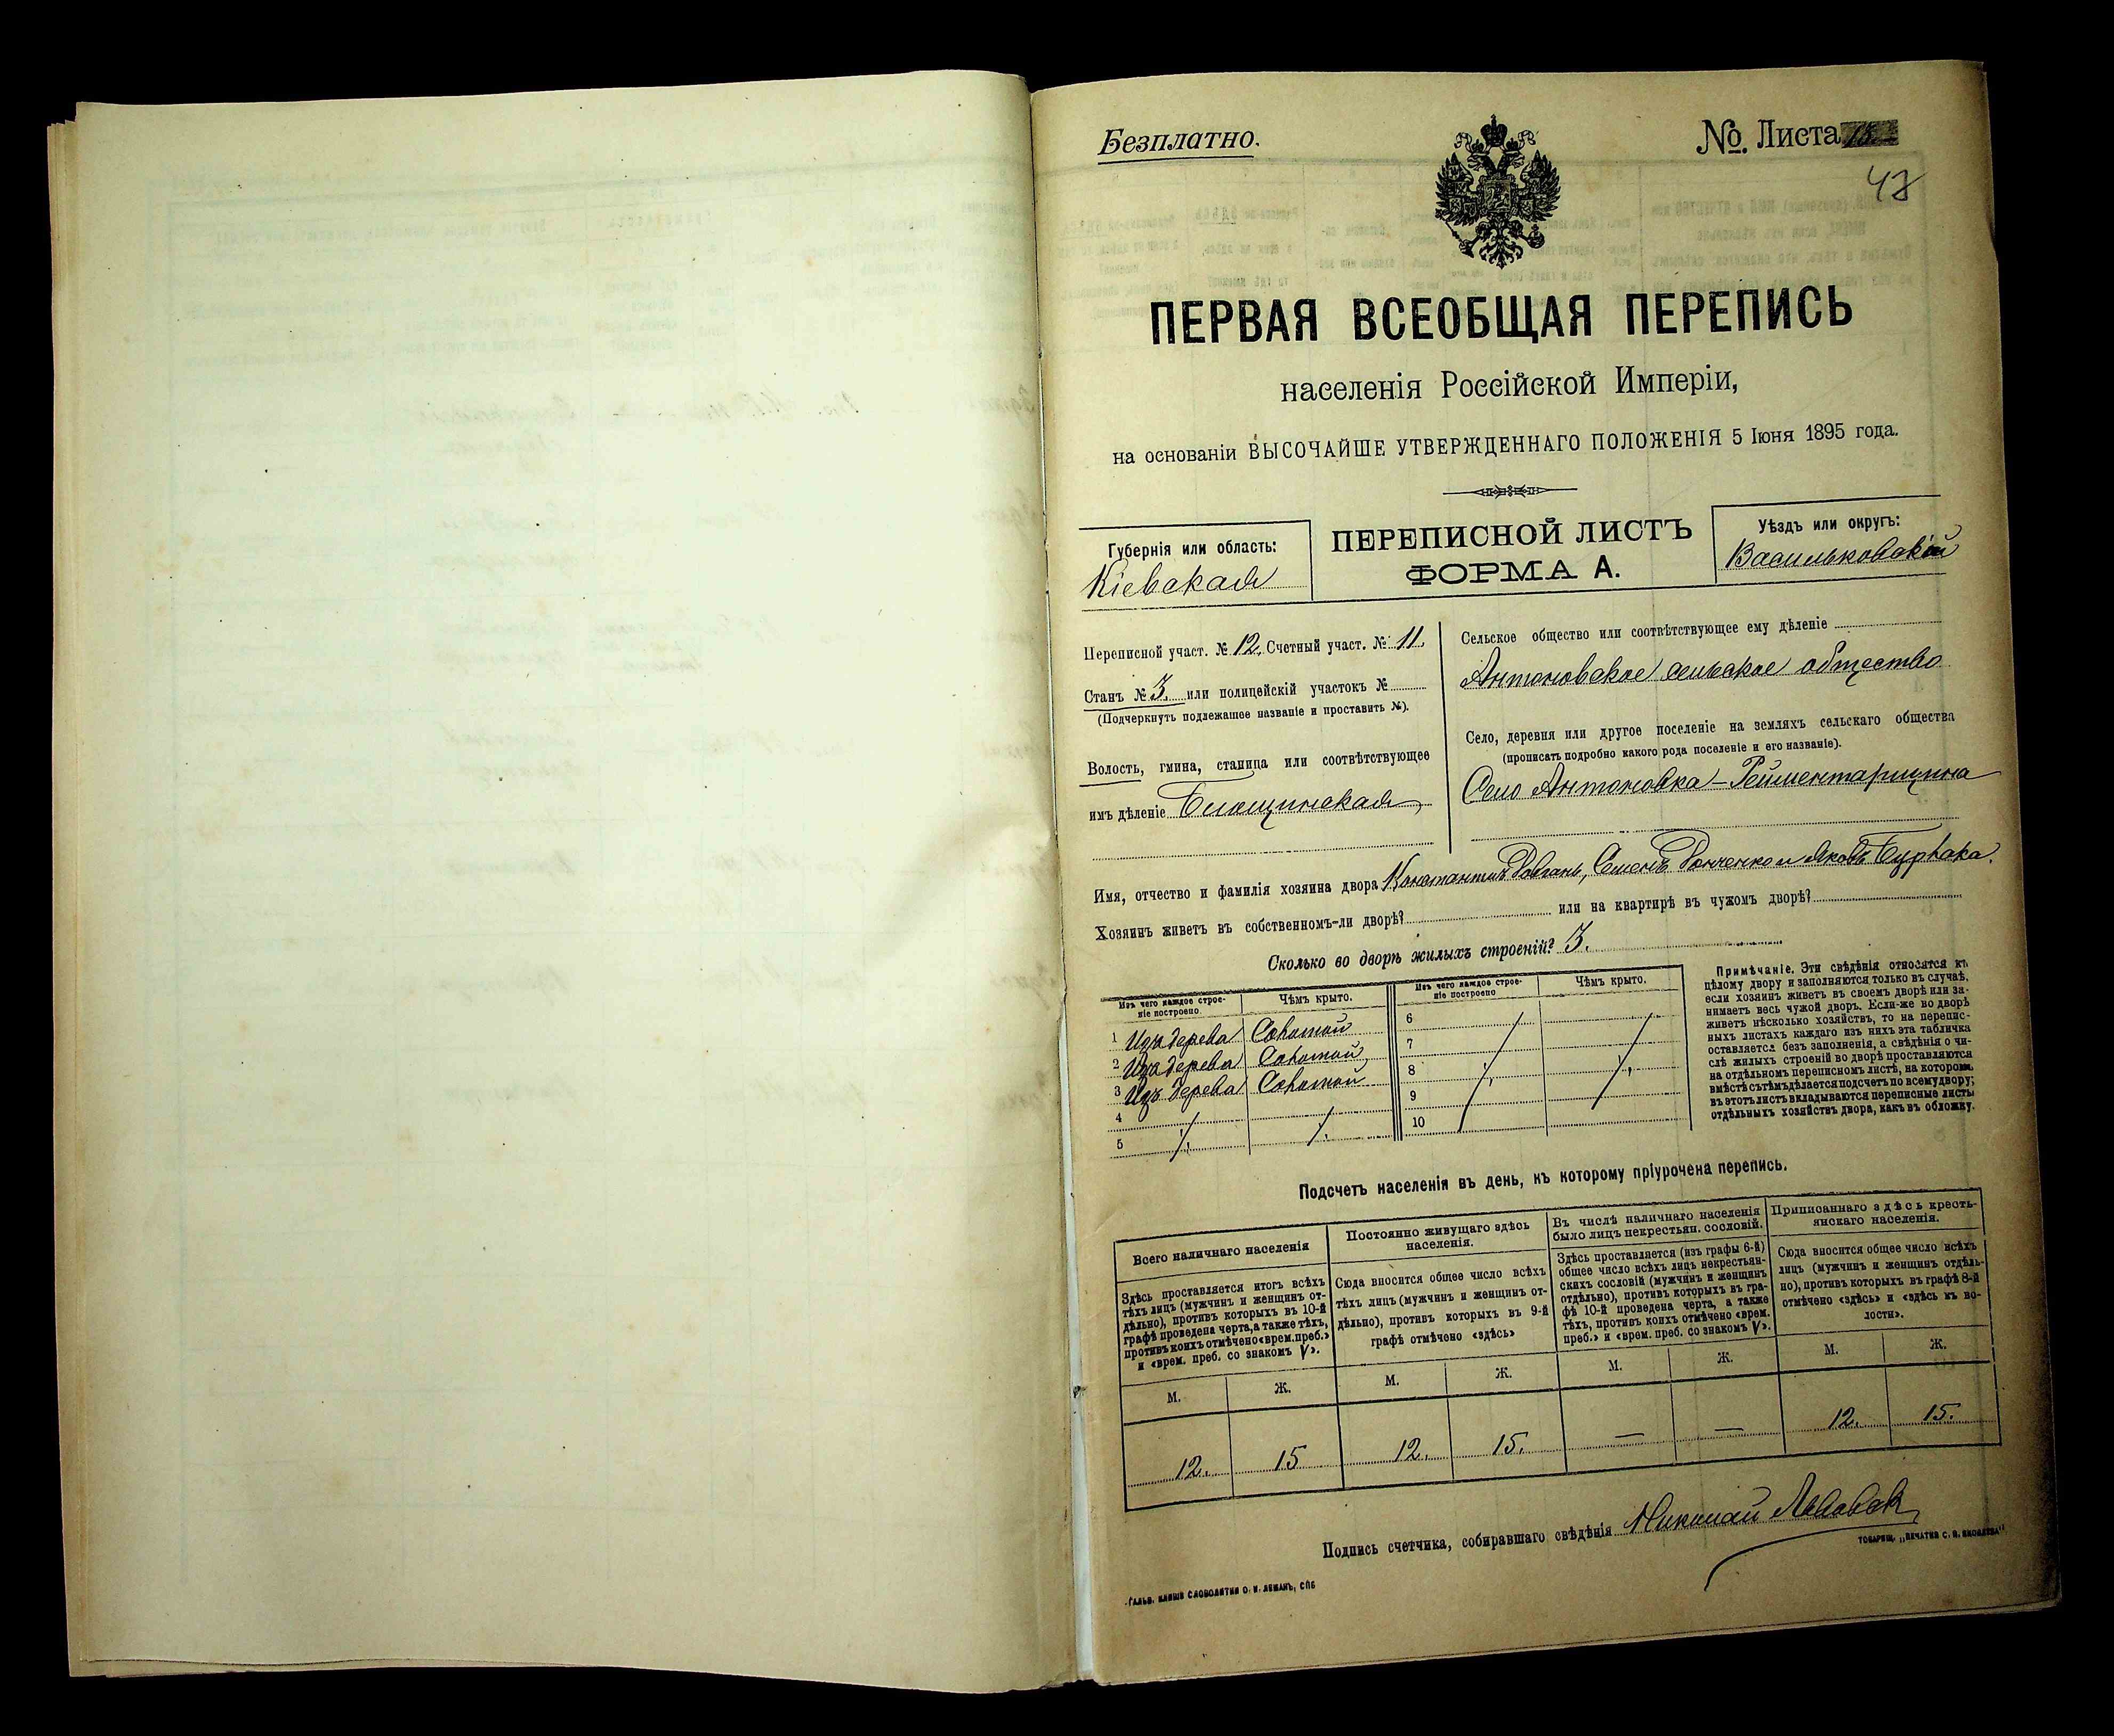 Безплатно.
№ Листа
48
ПЕРВАЯ ВСЕОБЩАЯ ПЕРЕПИСЬ
населенія Россійской Имперіи,
на основаніи ВЫСОЧАЙШЕ УТВЕРЖДЕННАГО ПОЛОЖЕНІЯ 5 Іюня 1895 года.
Губернія или область:
Кіевская
ПЕРЕПИСНОЙ ЛИСТЪ
ФОРМА А.
Уѣздъ или округъ:
Васильковскій
Переписной участ. № 12. Счетный участ. № 11.
Станъ № 3. или полицейскій участокъ №
(Подчеркнуть подлежащее названіе и проставить №).
Волость, гмина, станица или соотвѣтствующее
имъ дѣленіе
Сельское общество или соотвѣтствующее ему дѣленіе
Антоновское сельское общество
Село, деревня или другое поселеніе на земляхъ сельскаго общества
(прописать подробно какого рода поселеніе и его названіе).
Село Антоновка-Рейментарщина
Имя, отчество и фамилія хозяина двора Константинъ Довгань, Семенъ и Яковъ
Хозяинъ живетъ въ собственномъ-ли дворѣ? или на квартирѣ въ чужомъ дворѣ?
Сколько во дворѣ жилыхъ строеній? 3.
Изъ чего каждое строе-
ніе построено.
Чѣмъ крыто.
Изъ чего каждое строе-
ніе построено
Чѣмъ крыто.
1 Изъ дерева Соломой
2 Изъ дерева Соломой
3 Изъ дерева Соломой
4
5
6
7
8
9
10
Примѣчаніе. Эти свѣдѣнія относятся къ
цѣлому двору и заполняются только въ случаѣ,
если хозяинъ живетъ въ своемъ дворѣ или за-
нимаетъ весь чужой дворъ. Если-же во дворѣ
живетъ нѣсколько хозяйствъ, то на перепис-
ныхъ листахъ каждаго изъ нихъ эта табличка
оставляется безъ заполненія, а свѣдѣнія о чи-
слѣ жилыхъ строеній во дворѣ проставляются
на отдѣльномъ переписномъ листѣ, на которомъ
вмѣстѣ съ тѣмъ дѣлается подсчетъ по всему двору;
въ этотъ листъ вкладываются переписные листы
отдѣльныхъ хозяйствъ двора, какъ въ обложку.
Подсчетъ населенія въ день, къ которому пріурочена перепись.
Всего наличнаго населенія
Здѣсь проставляется итогъ всѣхъ
тѣхъ лицъ (мужчинъ и женщинъ от-
дѣльно), противъ которыхъ въ 10-й
графѣ проведена черта, а также тѣхъ,
противъ коихъ отмѣчено «врем. преб.»
и «врем. преб. со знакомъ V».
Постоянно живущаго здѣсь
населенія.
Сюда вносится общее число всѣхъ
тѣхъ лицъ (мужчинъ и женщинъ от-
дѣльно), противъ которыхъ въ 9-й
графѣ отмѣчено «здѣсь»
Въ числѣ наличнаго населенія
было лицъ некрестьян. сословій.
Здѣсь проставляется (изъ графы 6-й)
общее число всѣхъ лицъ некрестьян-
скихъ сословій (мужчинъ и женщинъ
отдѣльно), противъ которыхъ въ гра-
фѣ 10-й проведена черта, а также
тѣхъ, противъ коихъ отмѣчено «врем.
преб.» и «врем. преб. со знакомъ V».
Приписаннаго здѣсь кресть-
янскаго населенія.
Сюда вносится общее число всѣхъ
лицъ (мужчинъ и женщинъ отдѣль-
но), противъ которыхъ въ графѣ 8-й
отмѣчено «здѣсь» и «здѣсь въ во-
лости».
М. Ж. М. Ж. М. Ж. М. Ж.
12. 15 12. 15. — — 12. 15.
Подпись счетчика, собиравшаго свѣдѣнія Николай
ТОВАРИЩ. „ПЕЧАТНЯ С. П. ЯКОВЛЕВА“
ГАЛЬВ. КЛИШЕ СЛОВОЛИТНИ О. И. ЛЕМАНЪ, СПБ